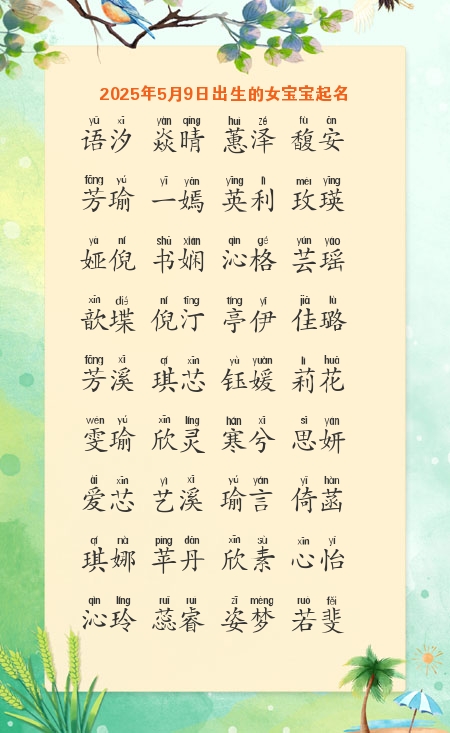 2025年5月9日出生的女宝宝起名
yǔ xī yàn qíng huì zé fù ān
语汐 焱晴 蕙泽 馥安
fāng yú yī yān yīng lì méi yīng
芳瑜 一嫣 英利 玫瑛
yà ní shū xián qìn gé yún yáo
娅倪 书娴 沁格 芸瑶
xīn dié ní tīng tíng yī jiā lù
歆堞 倪汀 亭伊 佳璐
fāng xī qí xīn yù yuàn lì huā
芳溪 琪芯 钰媛 莉花
wén yú xīn líng hán xī sī yán
雯瑜 欣灵 寒兮 思妍
ài xīn yì xī yú yán yǐ hàn
爱芯 艺溪 瑜言 倚菡
qí nà píng dān xīn sù xīn yí
琪娜 苹丹 欣素 心怡
qìn líng ruǐ ruì zī mèng ruò fěi
沁玲 蕊睿 姿梦 若斐